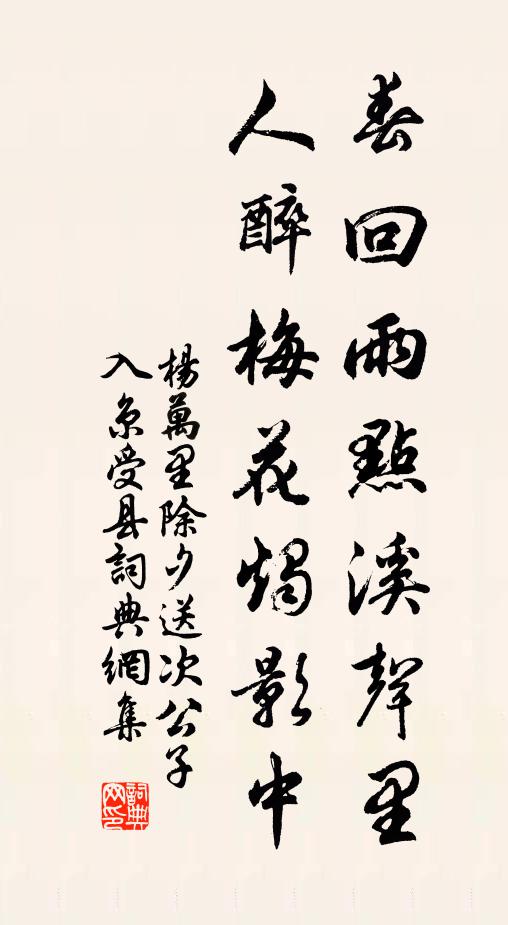 春回雨點溪聲里
人醉梅花燭影中
楊萬里除夕送次公子
入京受县詞典網集
詞典
网印